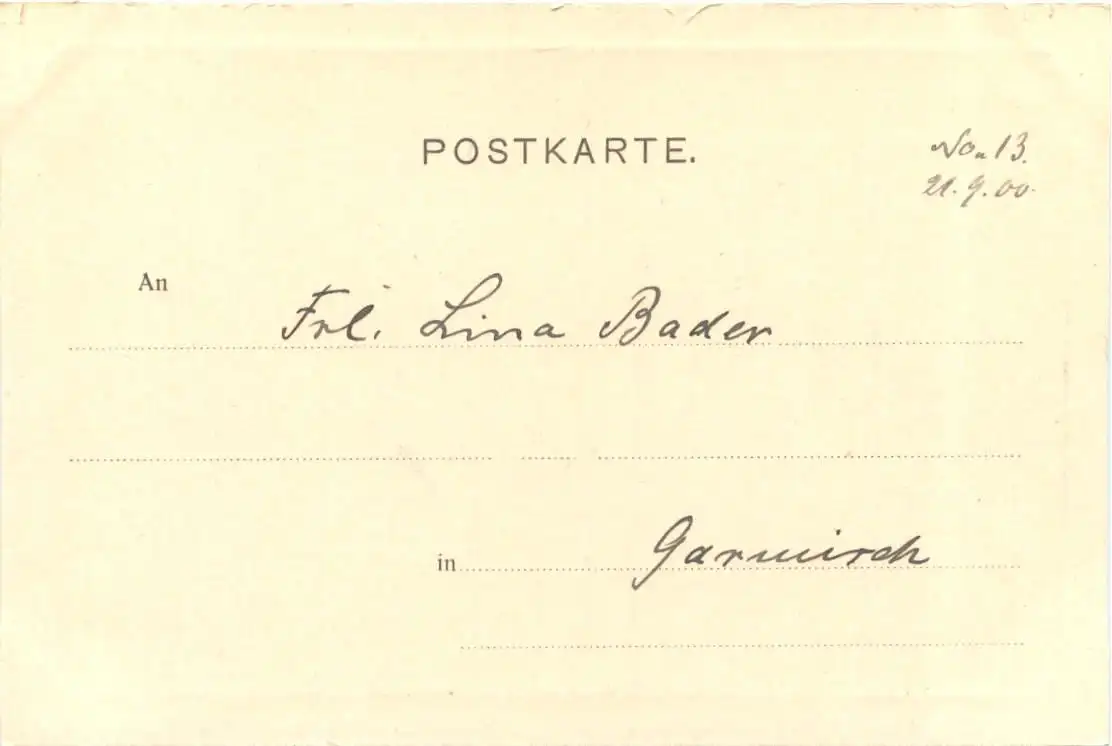 POSTKARTE.
No. 13.
21.9.00.
An
Frl. Lina Bader
in Garmisch